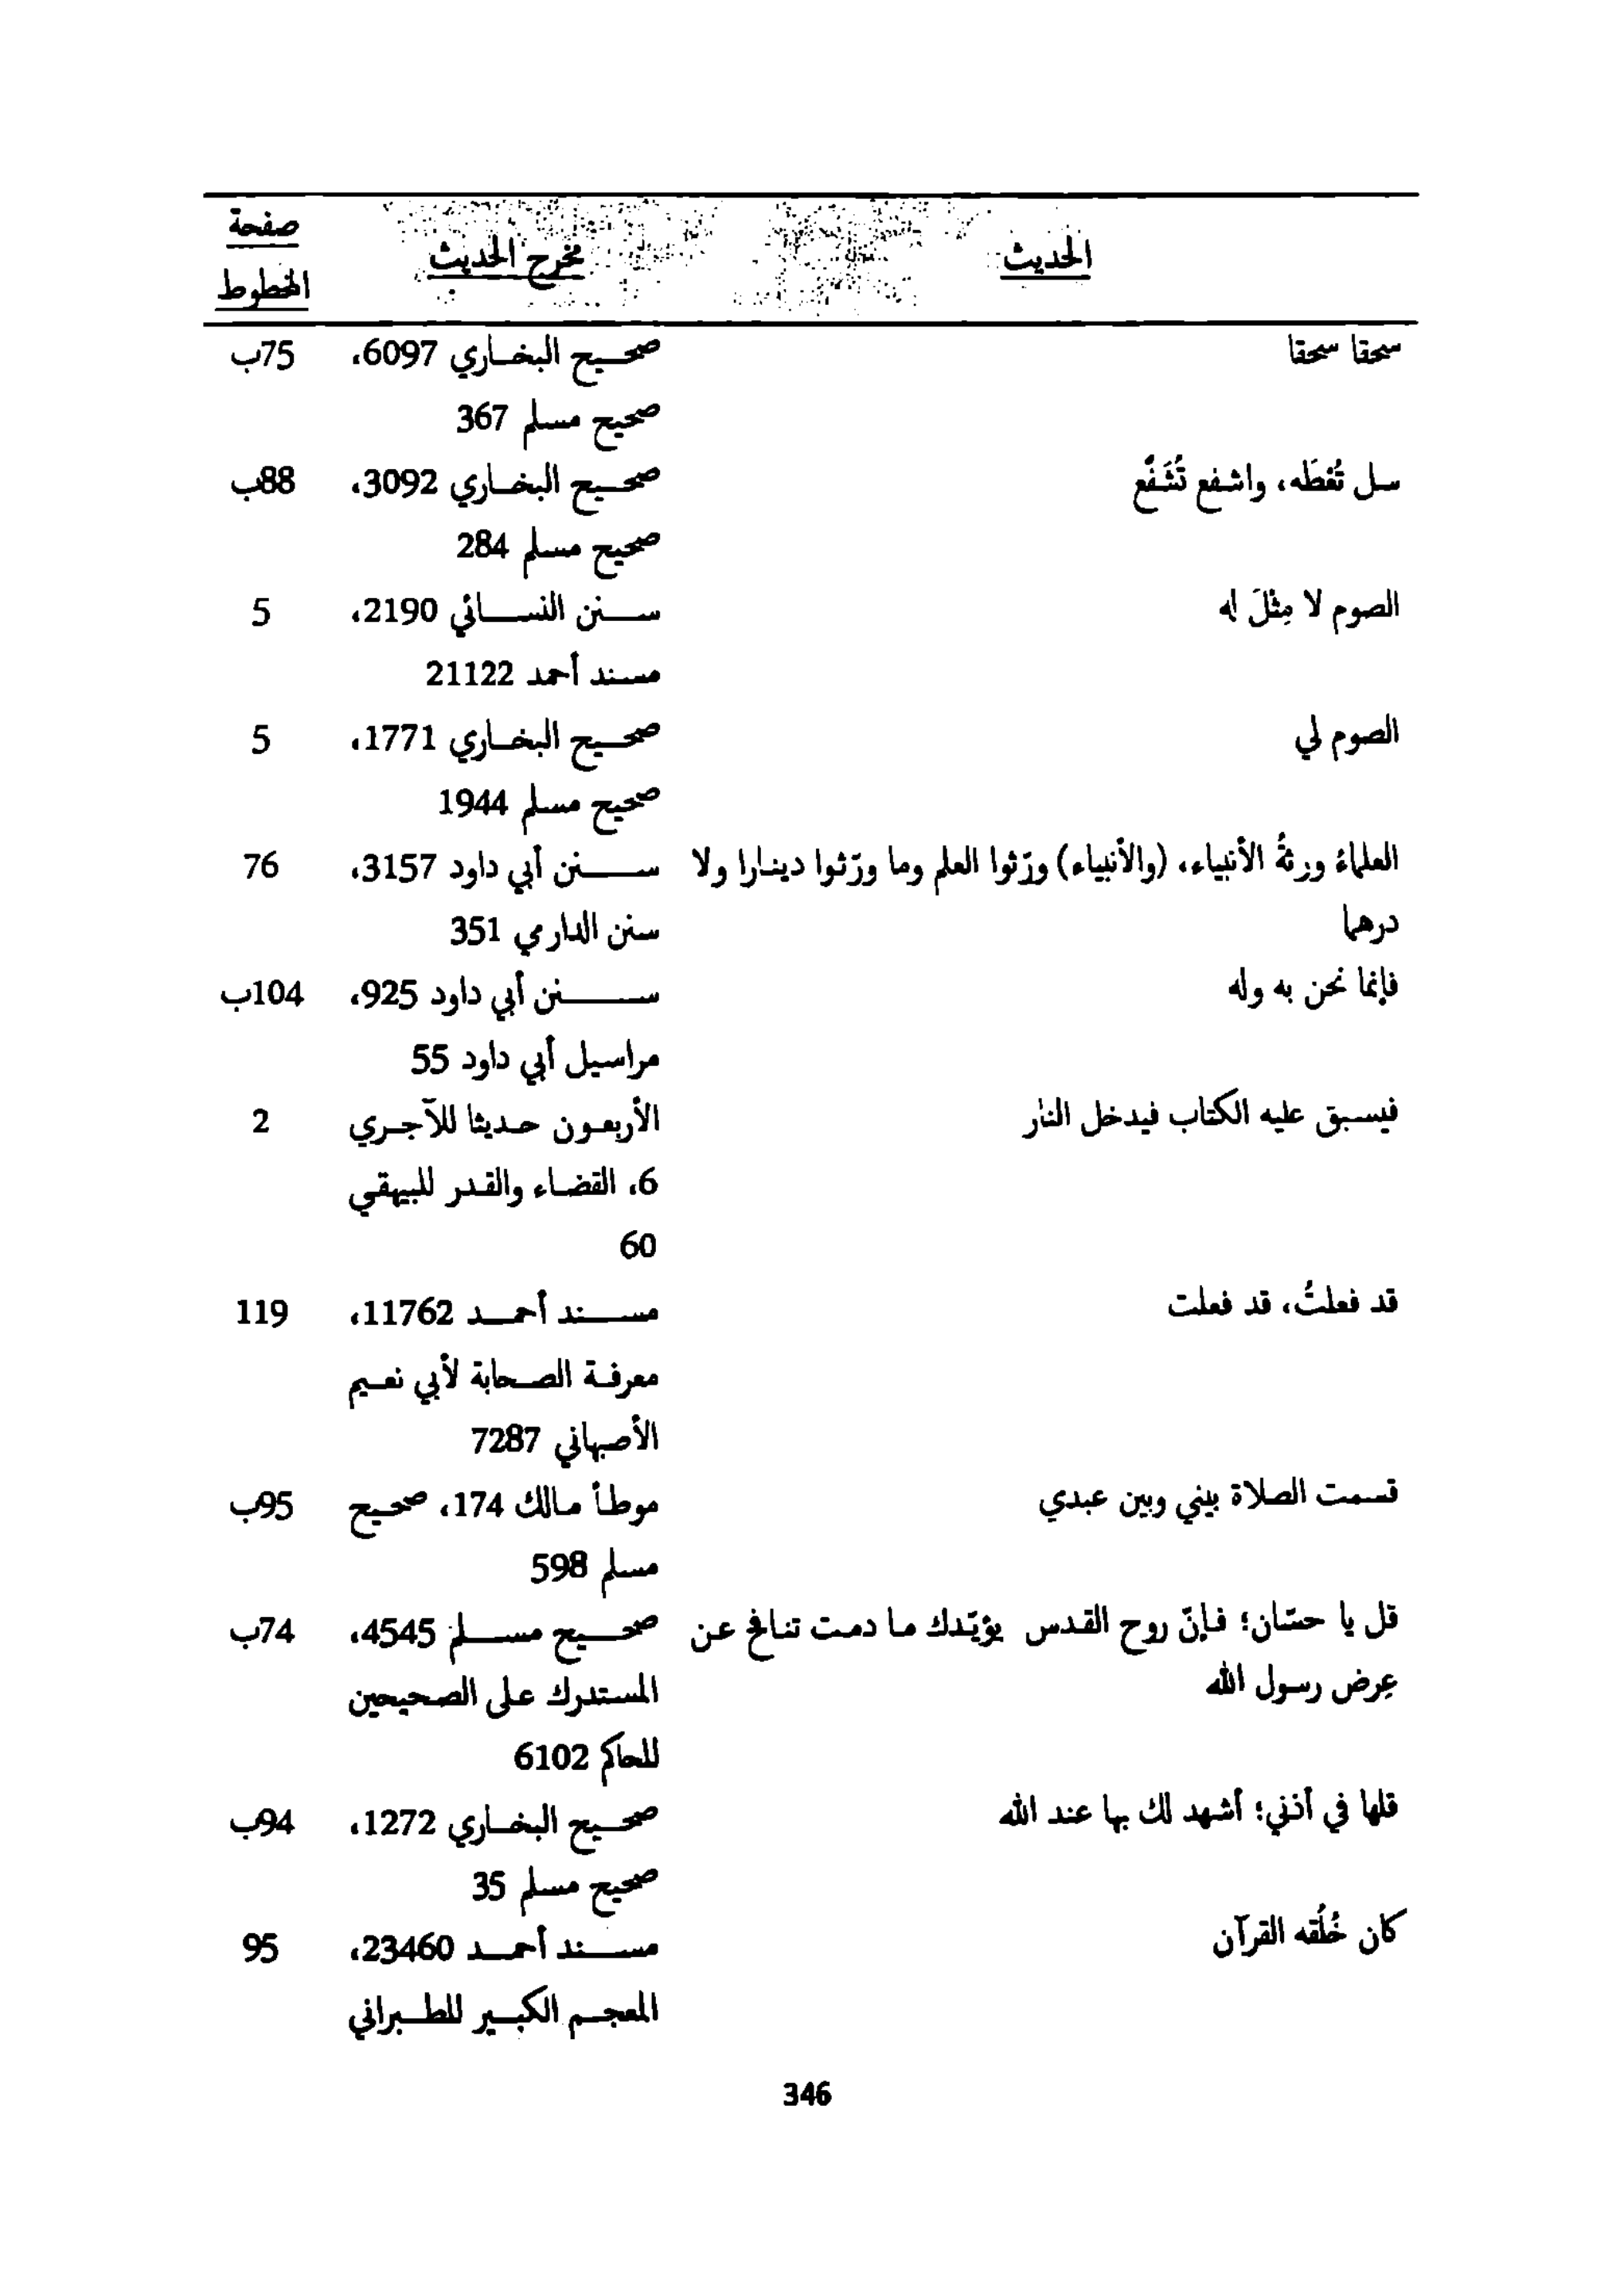 الحديث مخرج الحديث صفحة
المخطوط
سحقا سحقا صحيح البخاري 6097، 75ب
صحيح مسلم 367
سل تُعْطَه، واشفع تُشَفَّع صحيح البخاري 3092، 88ب
صحيح مسلم 284
الصوم لا مِثْلَ له سنن النسائي 2190، 5
مسند أحمد 21122
الصوم لي صحيح البخاري 1771، 5
صحيح مسلم 1944
العلماءُ ورثةُ الأنبياء، (والأنبياء) ورّثوا العلم وما ورّثوا دينارا ولا سنن أبي داود 3157، 76
درهما سنن الدارمي 351
فإنما نحن به وله سنن أبي داود 925، 104ب
مراسيل أبي داود 55
فيسبق عليه الكتاب فيدخل النار الأربعون حديثا للآجري 2
6، القضاء والقدر للبيهقي
60
قد فعلتُ، قد فعلت مسند أحمد 11762، 119
معرفة الصحابة لأبي نعيم
الأصبهاني 7287
قسمت الصلاة بيني وبين عبدي موطأ مالك 174، صحيح 95ب
مسلم 598
قل يا حسّان؛ فإنّ روح القدس يؤيّدك ما دمت تنافح عن صحيح مسلم 4545، 74ب
عِرض رسول الله المستدرك على الصحيحين
للحاكم 6102
قلها في أذني؛ أشهد لك بها عند الله صحيح البخاري 1272، 94ب
صحيح مسلم 35
كان خُلُقه القرآن مسند أحمد 23460، 95
المعجم الكبير للطبراني
346